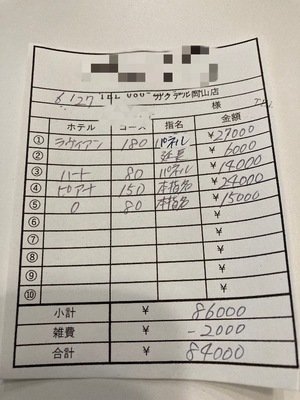 6/27
岡山店
様
ホテル コース 指名 金額
① ラヴィアン 180 パネル ¥27000
② 延長 ¥6000
③ ハート 80 パネル ¥14000
④ ピアナ 150 本指名 ¥24000
⑤ O 80 本指名 ¥15000
⑥ ¥
⑦ ¥
⑧ ¥
⑨ ¥
⑩ ¥
小計 ¥ 86000
雑費 ¥ -2000
合計 ¥ 84000